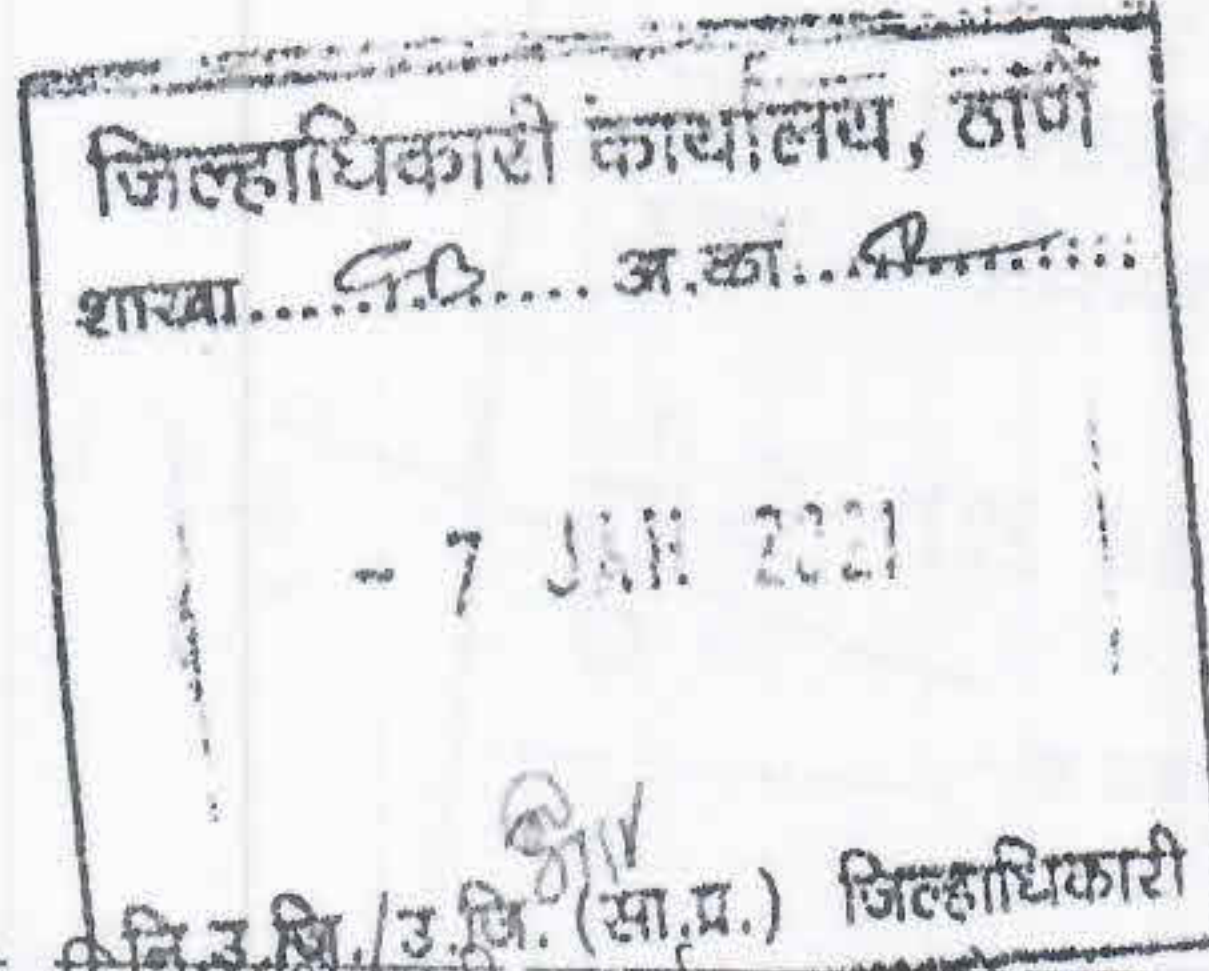 जिल्हाधिकारी कार्यालय, ठाणे
शाखा......G.B..... अ.का.............
- 7 JAN 2021
नि.उ.जि./उ.जि. (सा.प्र.) जिल्हाधिकारी